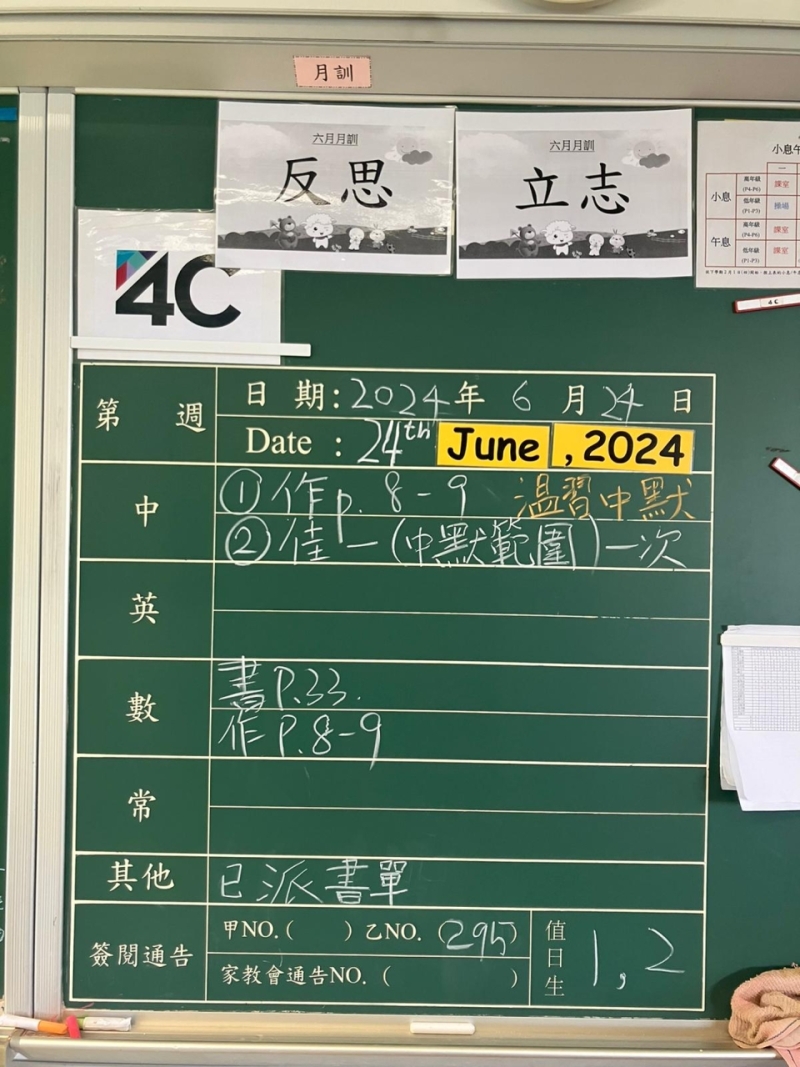 月訓
六月月訓
反思
六月月訓
立志
小息午
一
小息
高年級
(P4-P6)
課室
低年級
(P1-P3)
操場
午息
高年級
(P4-P6)
課室
低年級
(P1-P3)
課室
4C
4C
第 週
日 期:2024年 6 月 24 日
Date : 24th June , 2024
中
①作p. 8-9 溫習中默
②佳一(中默範圍)一次
英
數
書P.33.
作P.8-9
常
其他
已派書單
簽閱通告
甲NO.( ) 乙NO. (295)
家教會通告NO. ( )
值日生
1, 2